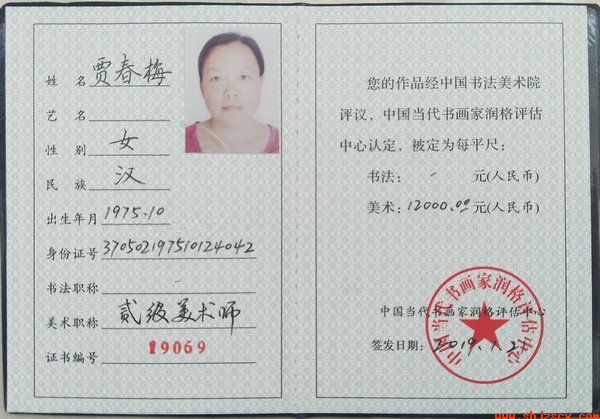 姓名 贾春梅
艺名
性别 女
民族 汉
出生年月 1975.10
身份证号 370502197510124042
书法职称 -
美术职称 贰级美术师
证书编号 19069
您的作品经中国书法美术院
评议，中国当代书画家润格评估
中心认定，被定为每平尺：
书法： - 元(人民币)
美术：12000.00元(人民币)
中国当代书画家润格评估中心
签发日期：2019.1.22
中国当代书画家润格评估中心